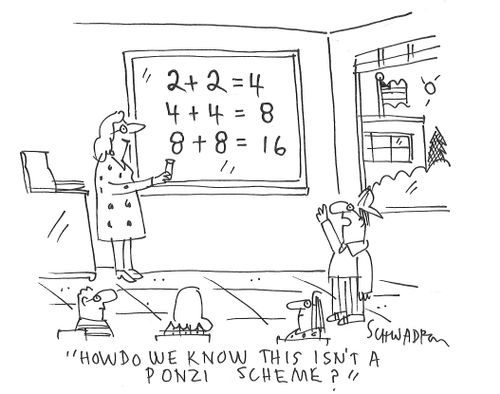 2 + 2 = 4
4 + 4 = 8
8 + 8 = 16
SCHWADRON
"HOW DO WE KNOW THIS ISN'T A
PONZI SCHEME?"